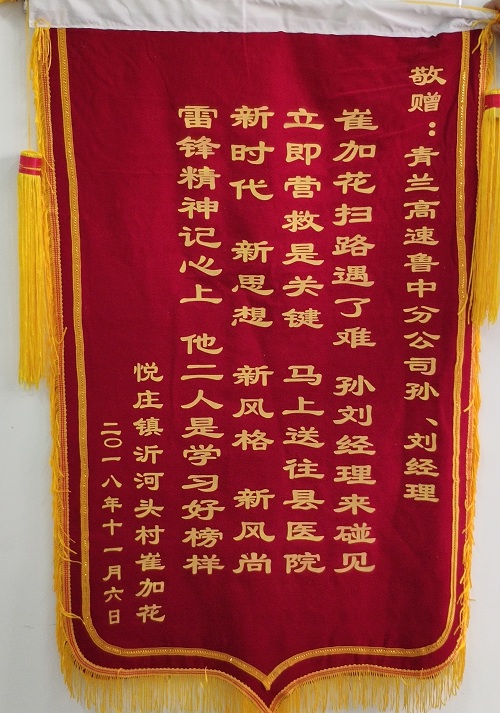 敬赠：青兰高速鲁中分公司孙、刘经理
崔加花扫路遇了难 孙刘经理来碰见
立即营救是关键 马上送往县医院
新时代 新思想 新风格 新风尚
雷锋精神记心上 他二人是学习好榜样
悦庄镇沂河头村崔加花
二〇一八年十一月六日